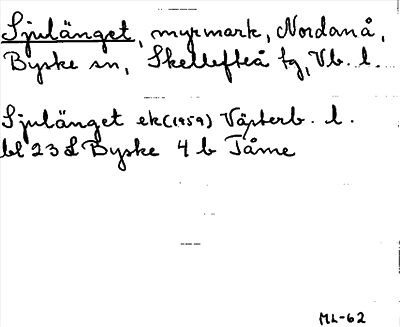 Sjulänget, myrmark, Nordanå,
Byske sn, Skellefteå tg, Vb. l.
Sjulänget ek (1959) Västerb. l.
bl 23 L Byske 4 b Tåme
ML-62